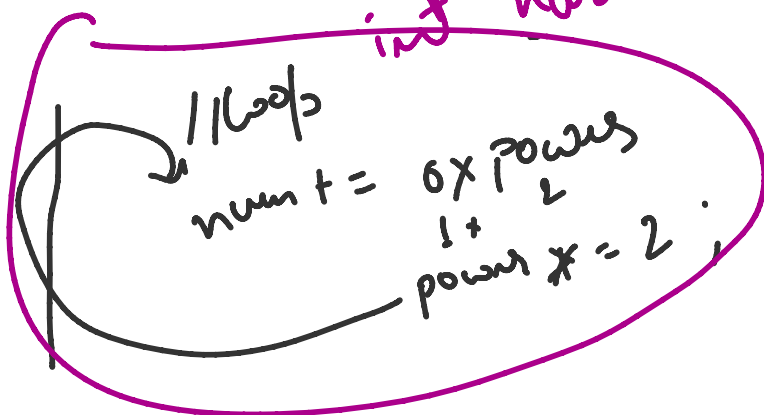 int
//loop
num + = 0 x power
1 + 2
power * = 2 ;